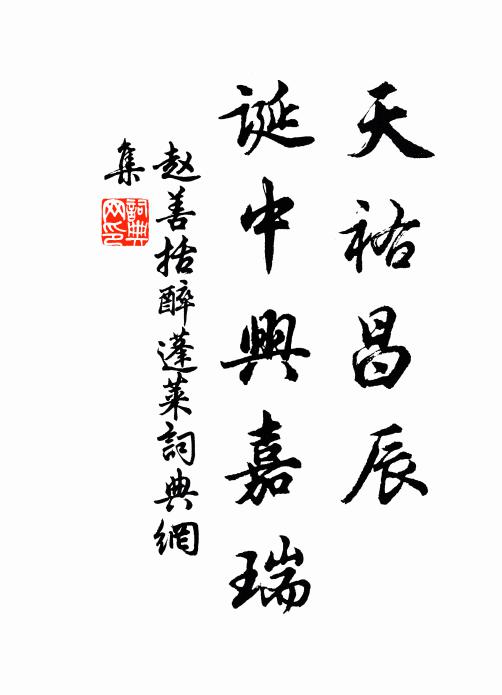 天祐昌辰
誕中興嘉瑞
赵善括醉蓬莱詞典網
集
詞典网印